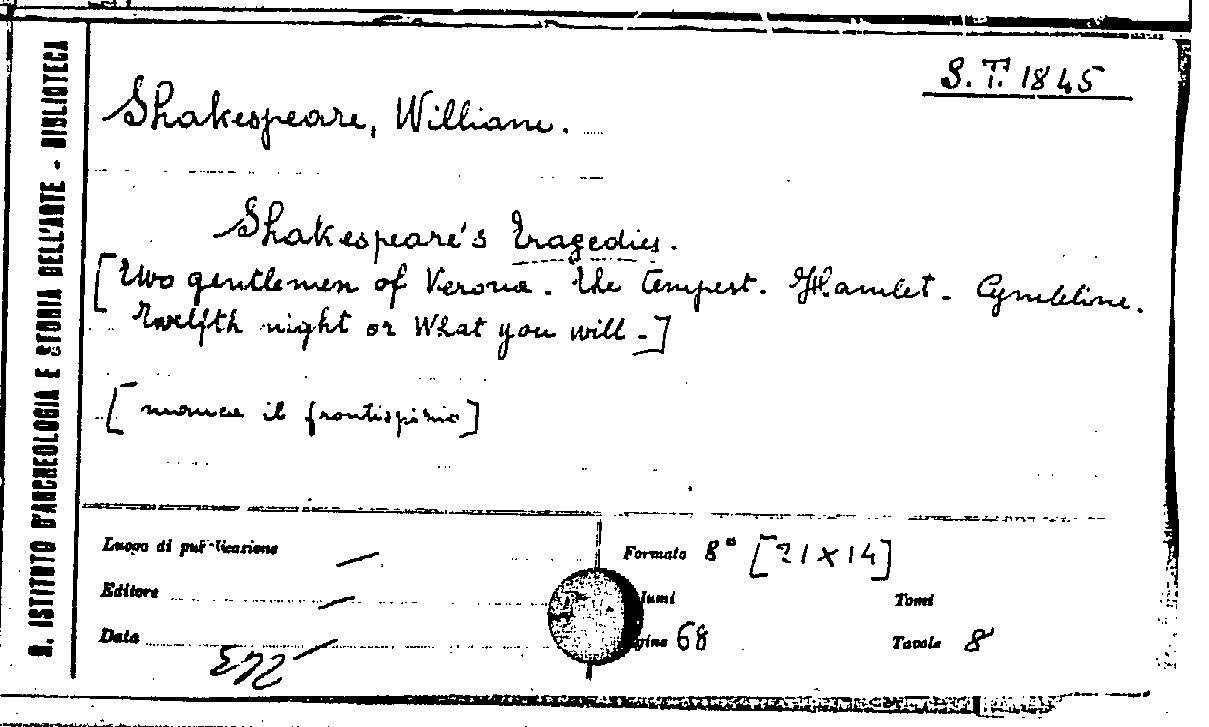 S. T. 1845
R. ISTITUTO D'ARCHEOLOGIA E STORIA DELL'ARTE - BIBLIOTECA
Shakespeare, William.
Shakespeare's tragedies.
[Two gentlemen of Verona. The tempest. Hamlet. Cymbeline.
Twelfth night or What you will.]
[manca il frontispizio]
Luogo di pubblicazione
Formato 8° [21 x 14]
Editore
lumi
Tomi
Data
gine 68
Tavole 8